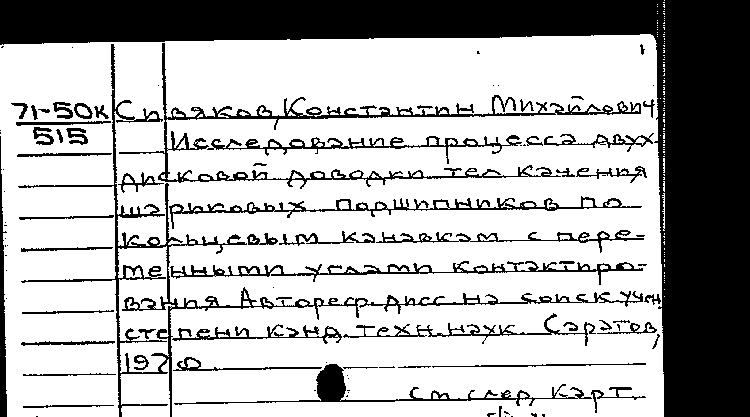 71-50к Сивяков, Константин Михайлович
515 Исследование процесса двух
дисковой доводки тел качения
шариковых подшипников по
кольцевым канавкам с пере-
менными углами контактиро-
вания. Автореф. дисс. на соиск учен
степени канд. техн. наук. Саратов,
См. след. карт.